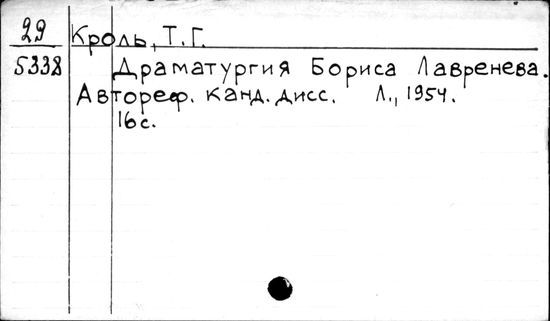 29 Кроль, Т. Г.
5338 Драматургия Бориса Лавренева.
Автореф. канд. дисс. Л., 1954.
16 с.